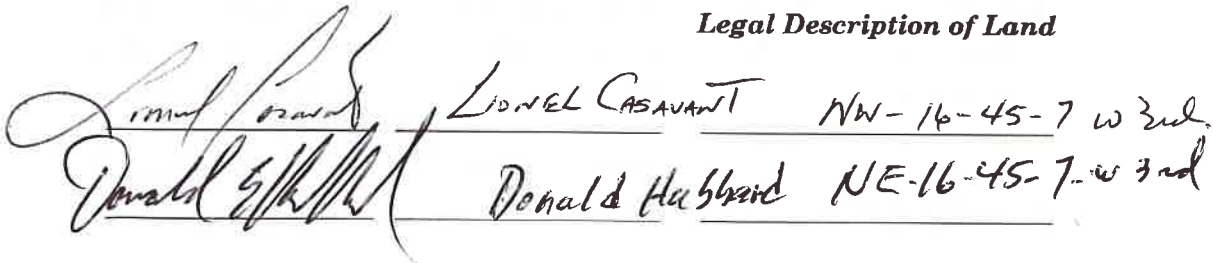 Legal Description of Land
Lionel Casavant LIONEL CASAVANT NW-16-45-7 W 3rd.
Donald Hubbard NE-16-45-7-W 3rd